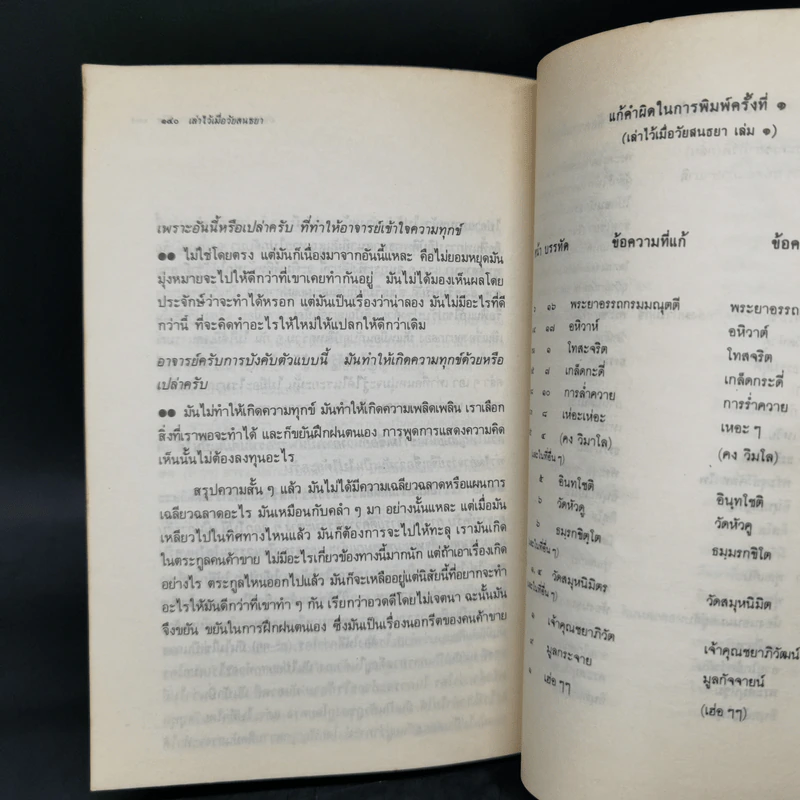 ๑๔๐ เล่าไว้เมื่อวัยสนธยา
เพราะอันนี้หรือเปล่าครับ ที่ทำให้อาจารย์เข้าใจความทุกข์
●● ไม่ใช่โดยตรง แต่มันก็เนื่องมาจากอันนี้แหละ คือไม่ยอมหยุดมัน
มุ่งหมายจะไปให้ดีกว่าที่เขาเคยทำกันอยู่ มันไม่ได้มองเห็นผลโดย
ประจักษ์ว่าจะทำได้หรอก แต่มันเป็นเรื่องว่าน่าลอง มันไม่มีอะไรที่ดี
กว่านี้ ที่จะคิดทำอะไรให้ใหม่ให้แปลกให้ดีกว่าเดิม
อาจารย์ครับการบังคับตัวแบบนี้ มันทำให้เกิดความทุกข์ด้วยหรือ
เปล่าครับ
●● มันไม่ทำให้เกิดความทุกข์ มันทำให้เกิดความเพลิดเพลิน เราเลือก
สิ่งที่เราพอจะทำได้ และก็ขยันฝึกฝนตนเอง การพูดการแสดงความคิด
เห็นนั้นไม่ต้องลงทุนอะไร
สรุปความสั้น ๆ แล้ว มันไม่ได้มีความเฉลียวฉลาดหรือแผนการ
เฉลียวฉลาดอะไร มันเหมือนกับคลำ ๆ มา อย่างนั้นแหละ แต่เมื่อมัน
เหลียวไปในทิศทางไหนแล้ว มันก็ต้องการจะไปให้ทะลุ เรามันเกิด
ในตระกูลคนค้าขาย ไม่มีอะไรเกี่ยวข้องทางนี้มากนัก แต่ถ้าเอาเรื่องเกิด
อย่างไร ตระกูลไหนออกไปแล้ว มันก็จะเหลืออยู่แต่นิสัยนี้ที่อยากจะทำ
อะไรให้มันดีกว่าที่เขาทำ ๆ กัน เรียกว่าอวดดีโดยไม่เจตนา ฉะนั้นมัน
จึงขยัน ขยันในการฝึกฝนตนเอง ซึ่งมันเป็นเรื่องนอกรีตของคนค้าขาย
แก้คำผิดในการพิมพ์ครั้งที่ ๑
(เล่าไว้เมื่อวัยสนธยา เล่ม ๑)
บรรทัด ข้อความที่แก้
๑๖ พระยาอรรถกรมมณุตตี พระยาอรรถ
๑๘ อหิวาห์ อหิวาต์
๑ โทสะจริต โทสจริต
๘ เกล็ดกะดี่ เกล็ดกระดี่
๑๐ การล่ำควาย การร่ำควาย
๘ เห่อะเห่อะ เหอะ ๆ
๔ (คง วิมาโล) (คง วิมโล)
๕ อินทโชติ อินฺทโชติ
๖ วัดหัวคู วัดหัวคู
๖ ธมฺรกขิตฺโต ธมฺมรกขิโต
๔ วัดสมุหนิมิตร วัดสมุหนิมิต
เจ้าคุณชยาภิวัต เจ้าคุณชยาภิวัฒน์
มูลกระจาย มูลกัจจายน์
เฮ่อ ๆๆ (เฮ่อ ๆๆ)